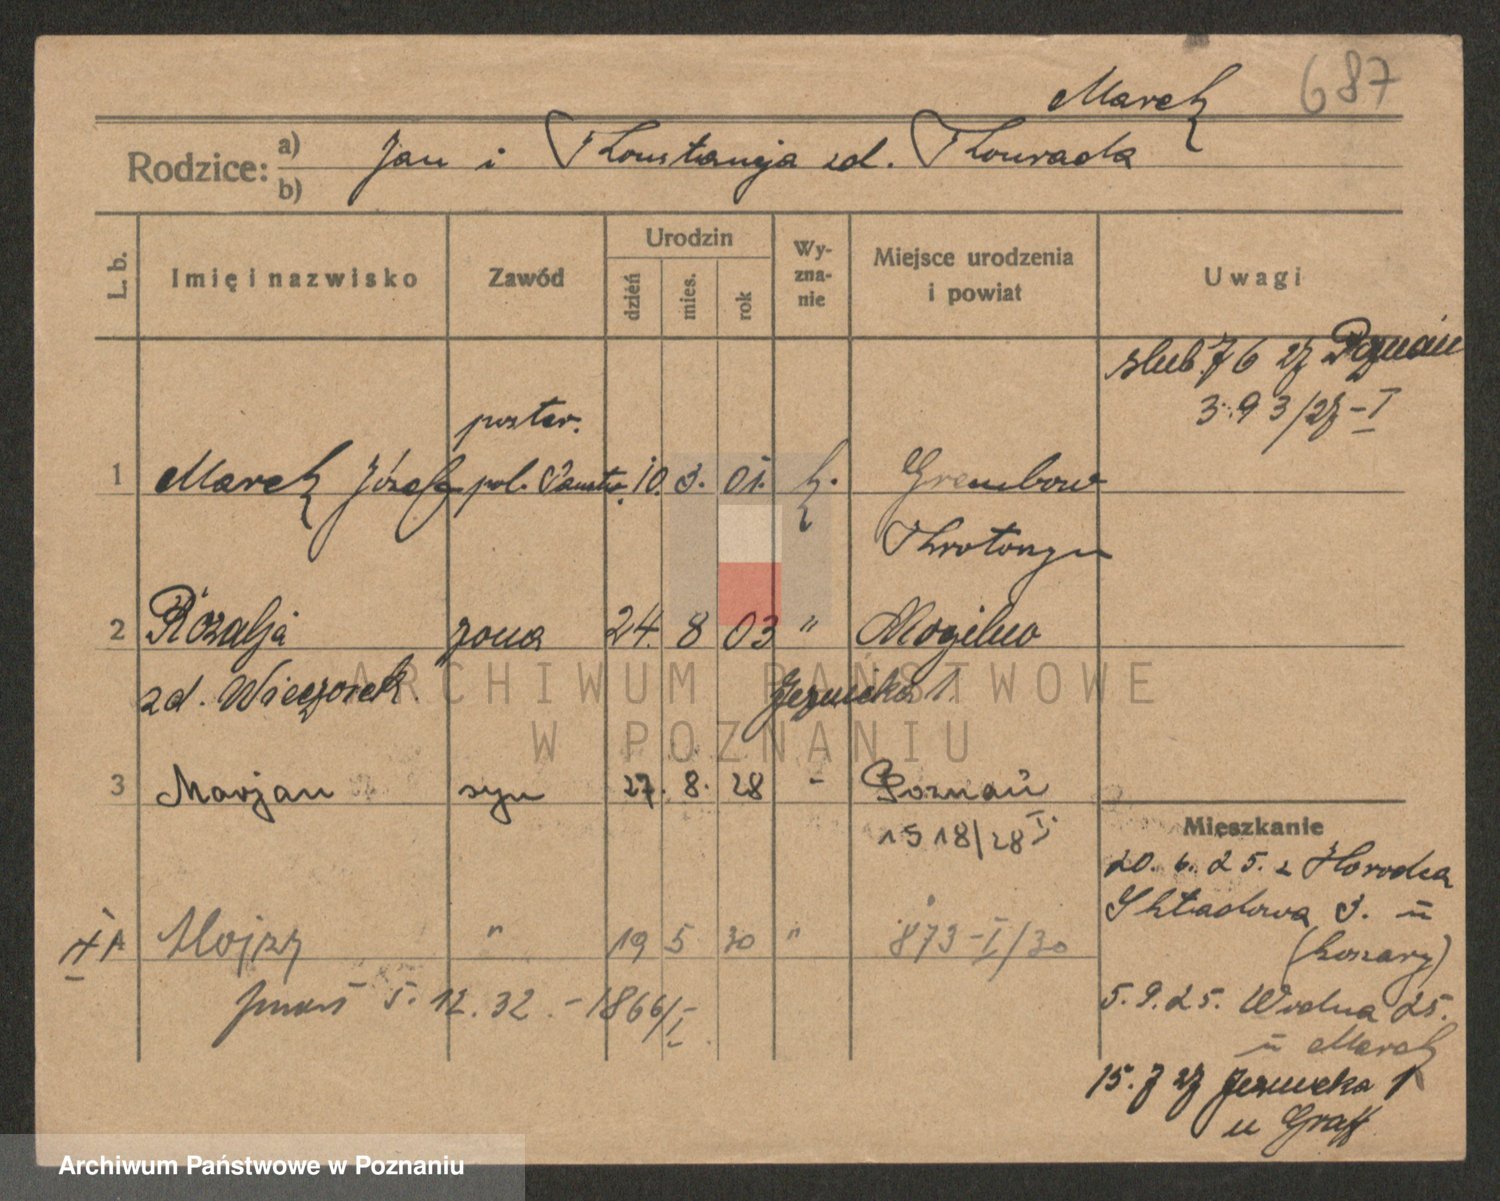 687
Marek
Rodzice: a) b) Jan i Konstancja zd. Konrada
L. b.
Imię i nazwisko
Zawód
Urodzin
dzień
mies.
rok
Wy-
zna-
nie
Miejsce urodzenia
i powiat
Uwagi
slub. 7 6 27 Poznań
393/27-I
poster.
1 Marek Józef pol. Państw. 10. 3. 01. k. Grembow
Krotoszyn
2 Rozalja żona 24. 8 03 " Mogilno
zd. Wieczorek. Jezuicka 1.
3 Marjan syn 27. 8. 28 - Poznań
1518/28 I.
Mieszkanie
20. 6. 25. z
Składowa 3. u
(koszary)
A Alojzy " 19 5 30 " 873-I/30
zmarł 5. 12. 32. - 1866/I
5. 9. 25. Wodna 25.
u Marek
15. 7 27 Jezuicka 1
u Graff
ARCHIWUM PAŃSTWOWE
W POZNANIU
Archiwum Państwowe w Poznaniu